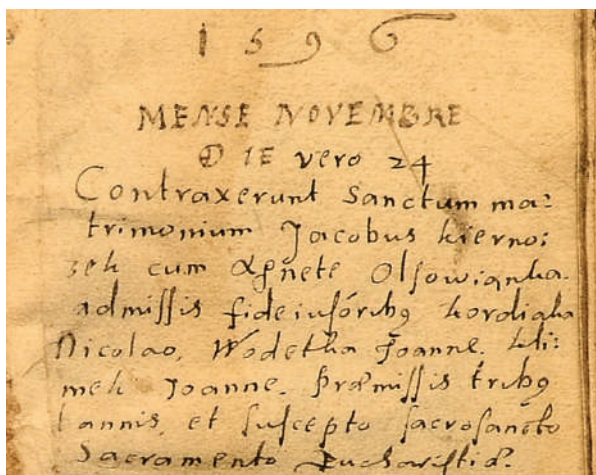 1596
MENSE NOVEMBRE
DIE vero 24
Contraxerunt Sanctum ma:
trimonium Jacobus kierno:
zek cum Agnete Olsowianka.
admissis fideiusoribꝯ kordiaka
Nicolao, Wodetka Joanne. kli:
mek Joanne. Præmissis tribꝯ
bannis, et suscepto sacrosancto
Sacramento Eucharistiæ